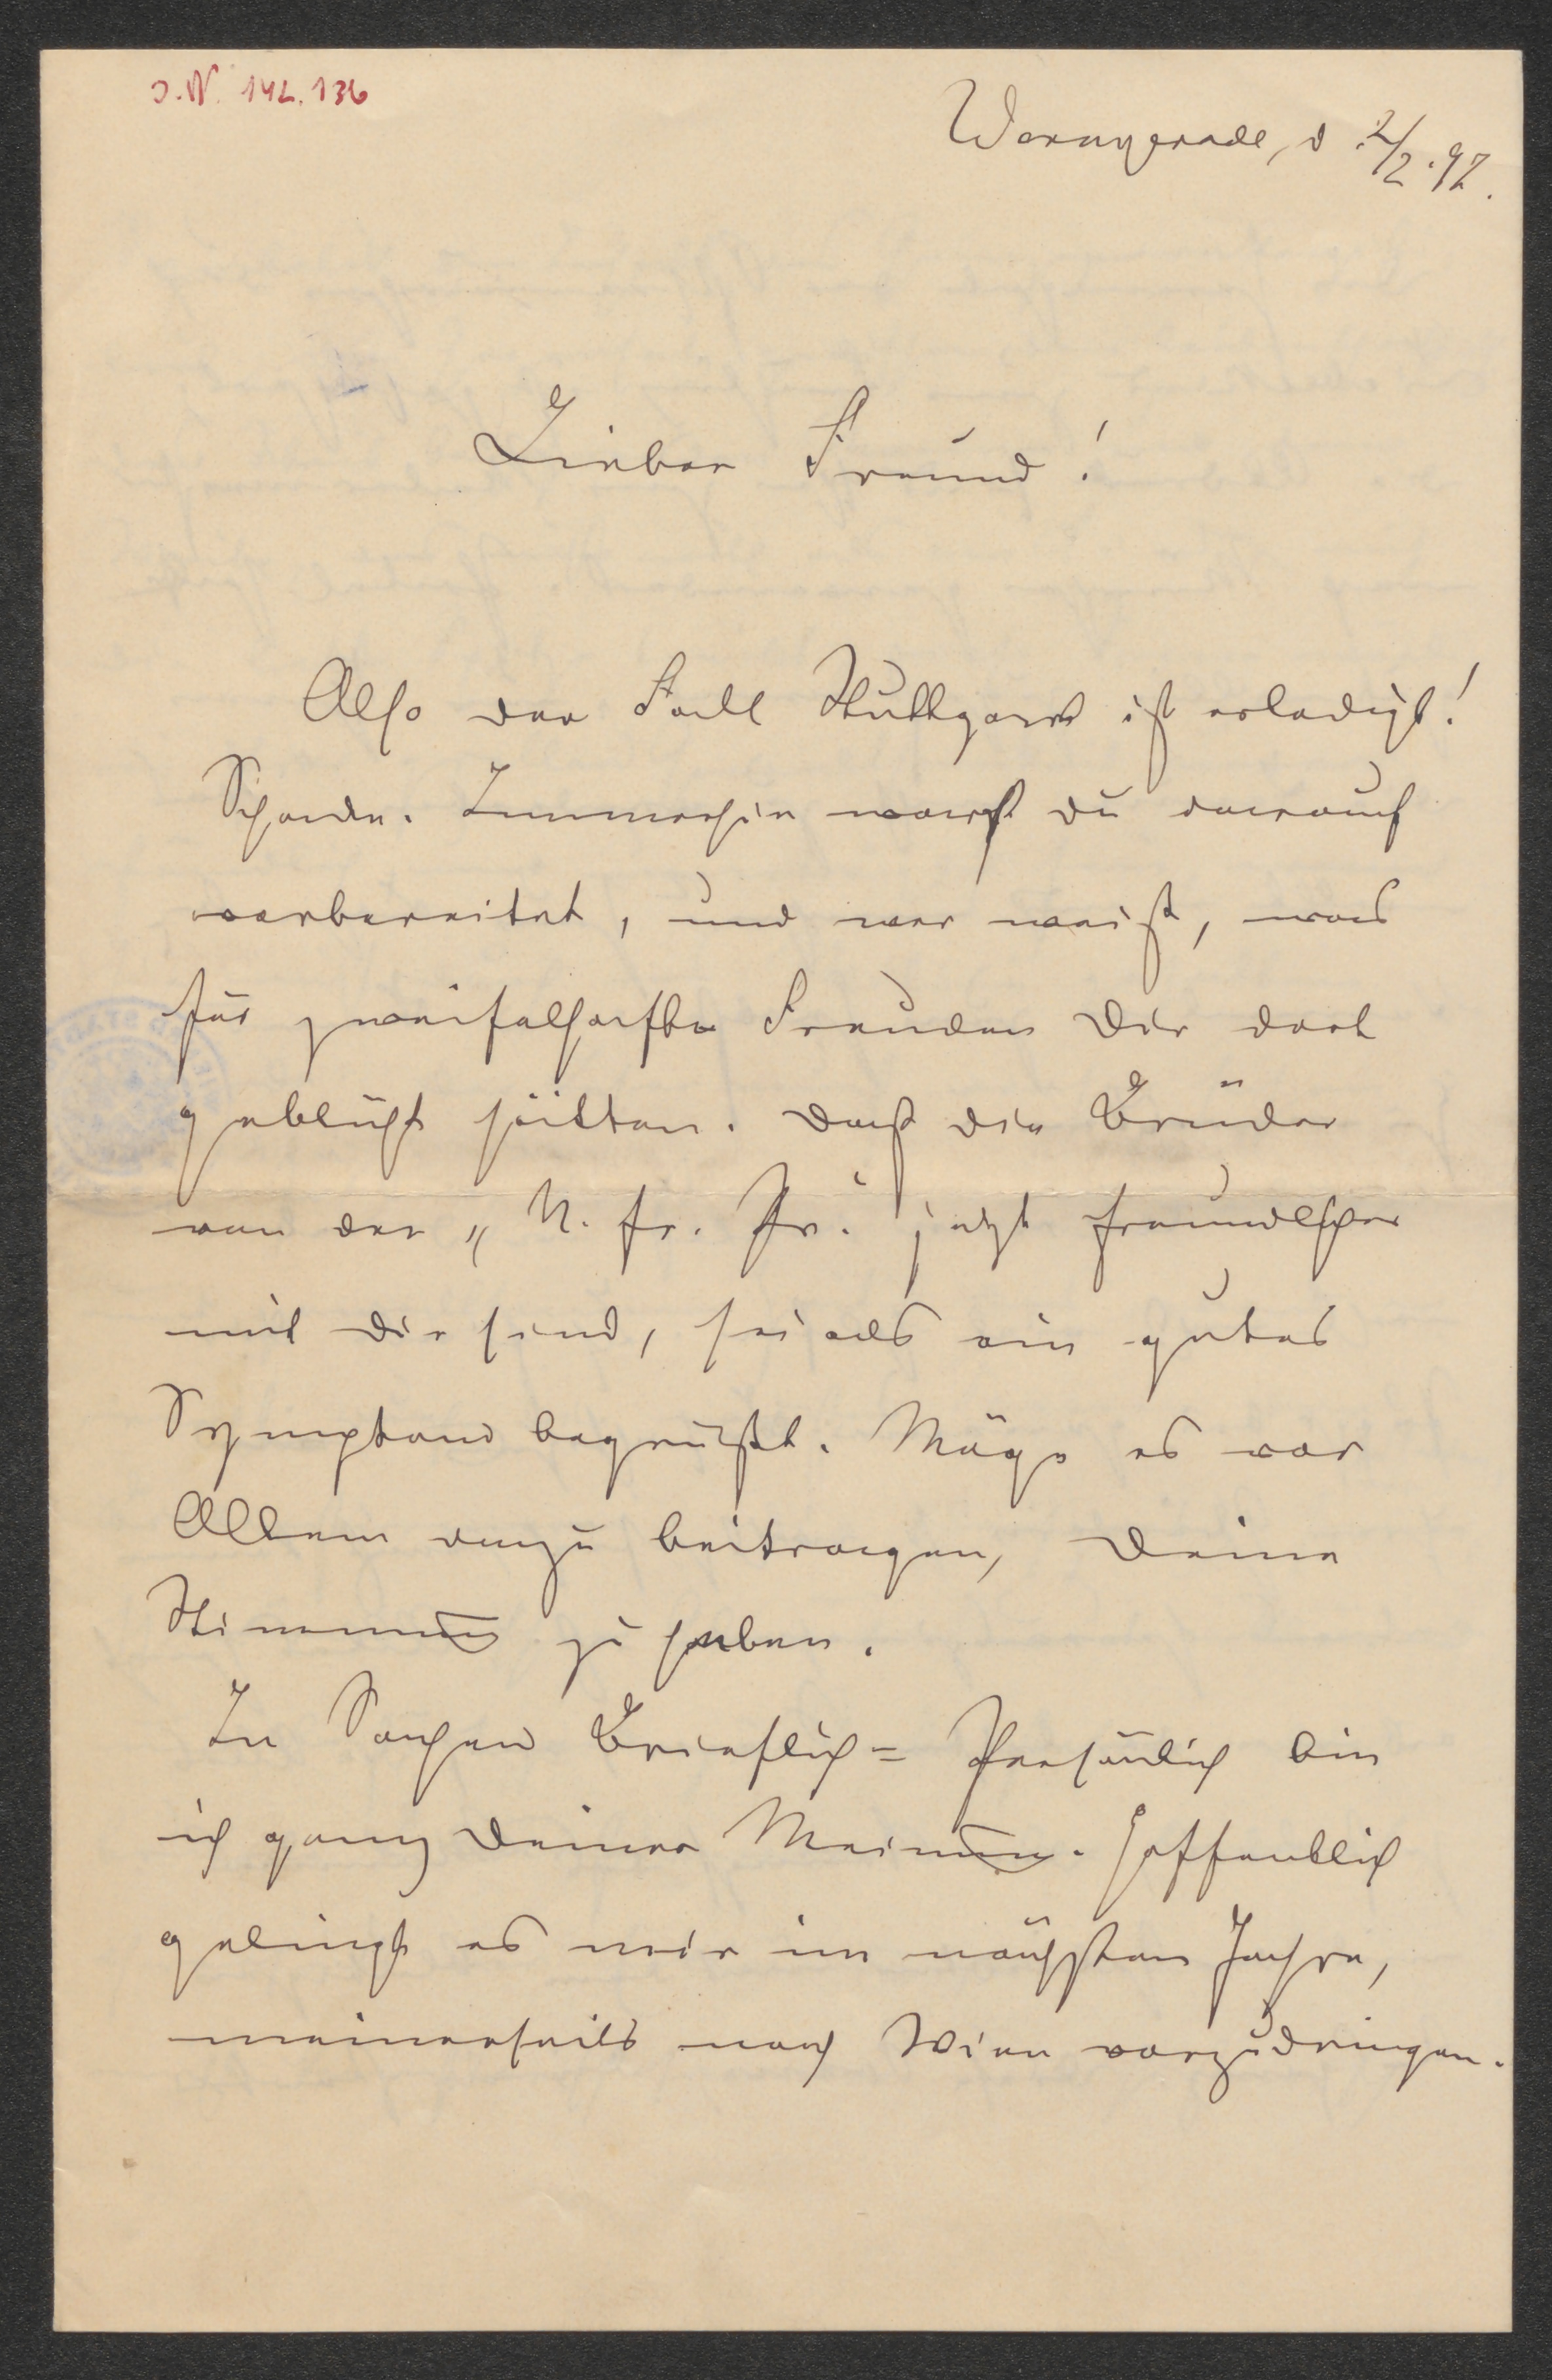 J.N. 142.136
Wernigerode, d. 2/2. 97.
Lieber Freund!
Also der Fall Stuttgart ist erledigt!
Schade. Immerhin warst Du darauf
vorbereitet, und wer weiß, was
für zweifelhafte Freuden Dir dort
geblüht hätten. Daß die Brüder
von der „N. fr. Pr." jetzt freundlicher
mit Dir sind, sei als ein gutes
Symptom begrüßt. Möge es vor
Allem dazu beitragen, Deine
Stimmung zu heben.
In Sachen Brieflich-Persönlich bin
ich ganz Deiner Meinung. Hoffentlich
gelingt es mir im nächsten Jahre,
meinerseits nach Wien vorzudringen.